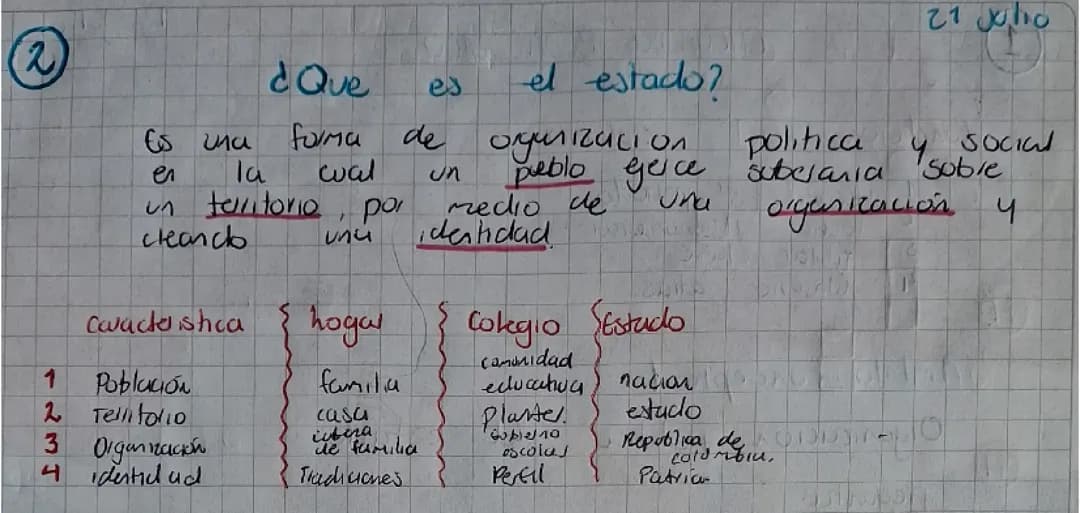 21 Julio
2
1
¿Que es el estado?
Es una forma de organizacion politica y social
en la cual un pueblo ejerce soberania sobre
un territorio, por medio de una organización y
creando una identidad.
caracteristica hogar Colegio Estado
comunidad
1 Población familia educativa nacion
2 Territorio casa Plantel. estado
3 Organización cabeza de familia gobierno escolar Republica de colombia.
4 identidad Tradiciones Perfil Patria